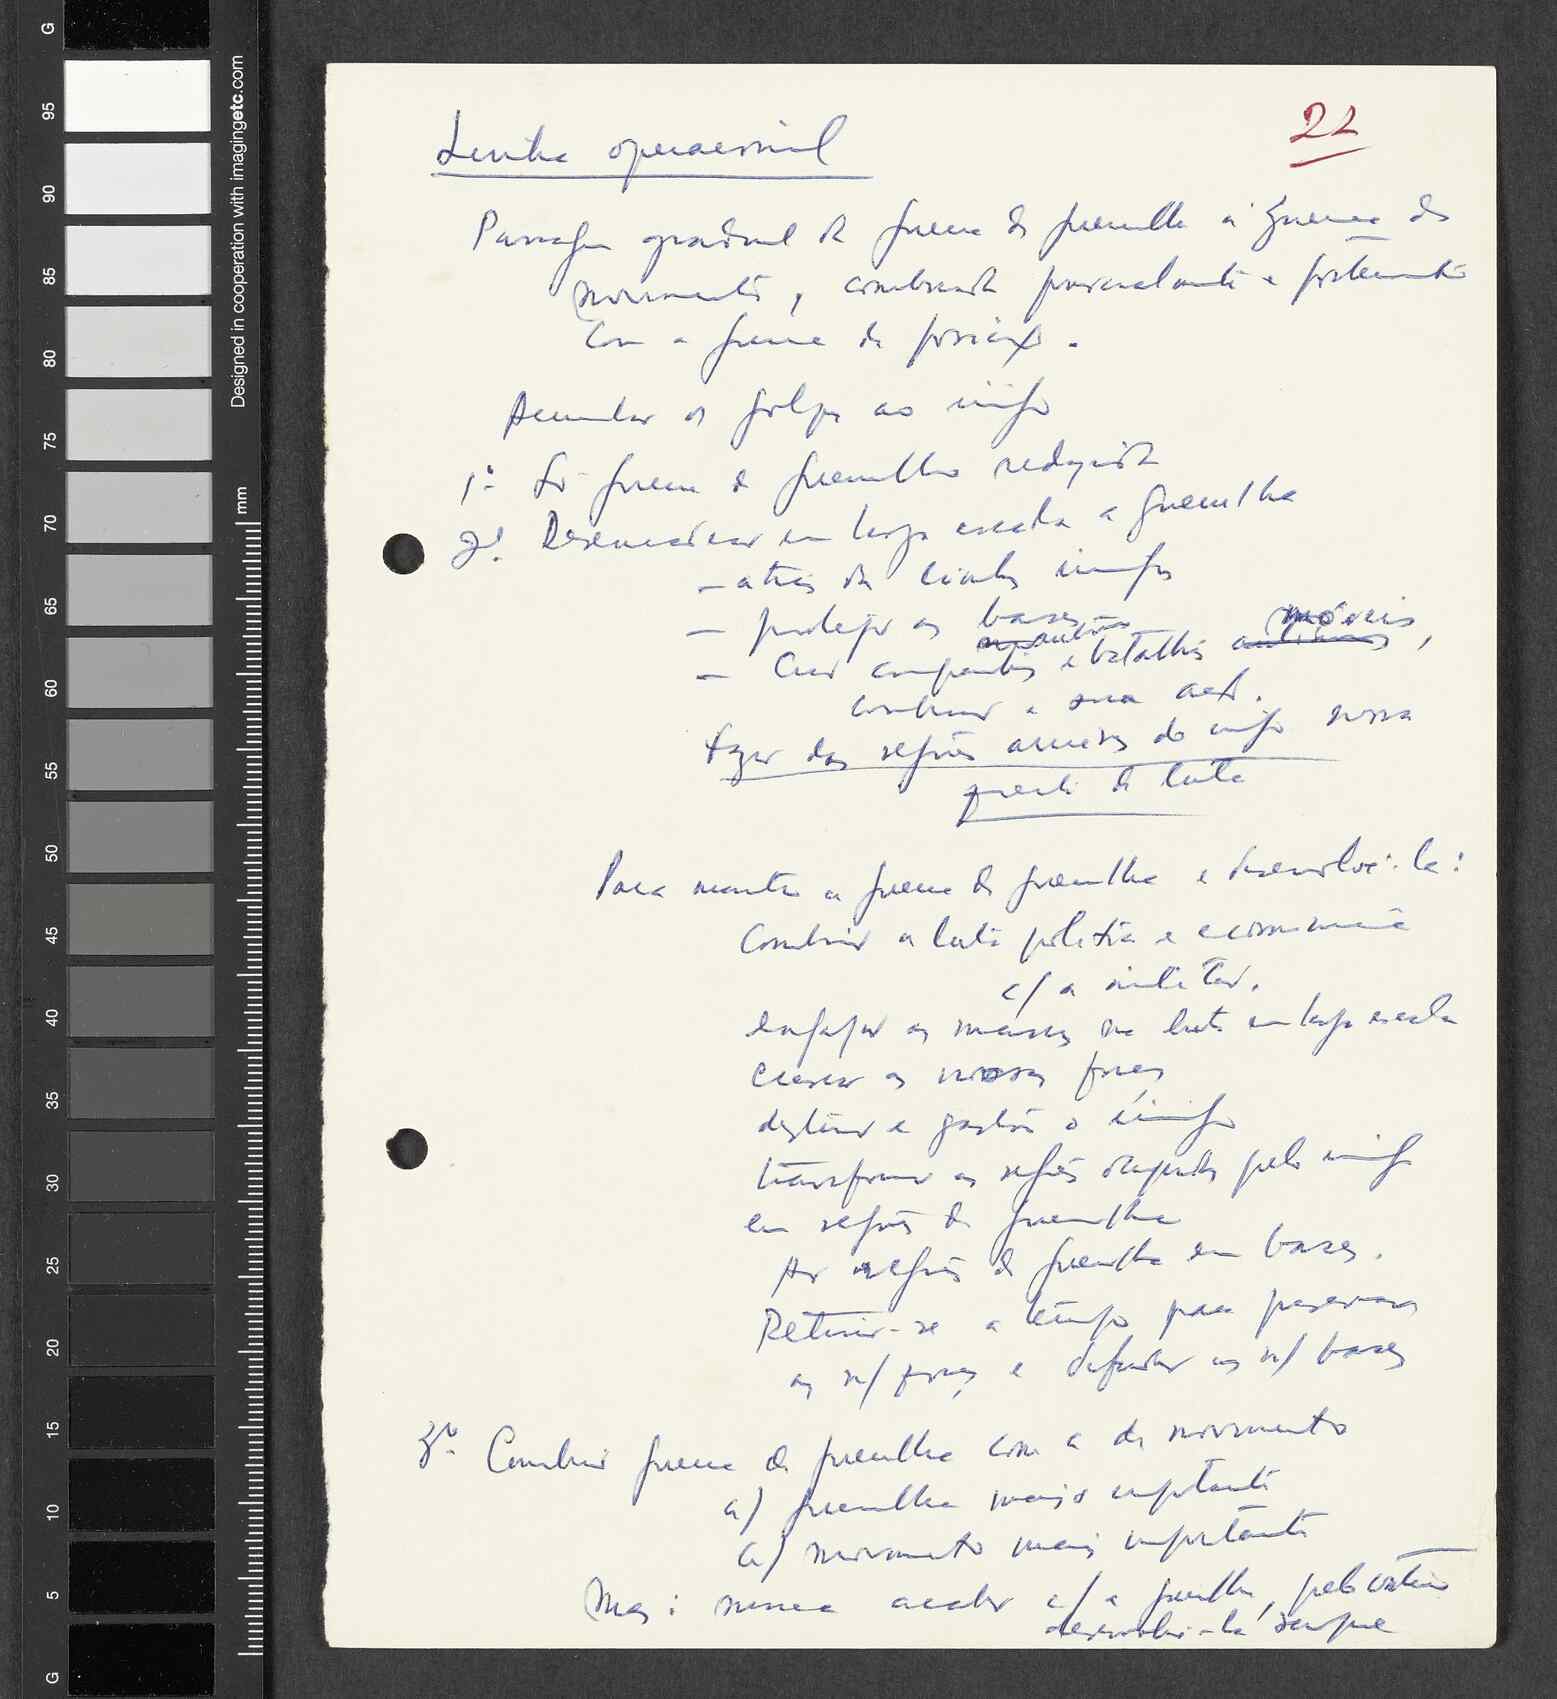 Linha operacional
22
Passagem gradual da guerra de guerrilha à guerra de
movimento, combinada parcialmente e fortemente
com a guerra de posição.
Acumular os golpes ao inimigo
1º. Só guerra de guerrilha
2º. Desencadear em larga escala a guerrilha
– atrás das linhas inimigas
– proteger as bases
– Criar companhias e batalhões móveis,
combinar a sua acção.
fazer das regiões do inimigo nossa
frente de luta
Para manter a guerra de guerrilha e desenvolvê-la:
Combinar a luta política e económica
c/ a militar.
engajar as massas na luta em larga escala
crescer as nossas forças
destruir e gastar o inimigo
transformar as regiões ocupadas pelo inimigo
em regiões de guerrilha
As regiões de guerrilha em bases.
Retirar-se a tempo para preservar
as n/ forças e defender as n/ bases
3º. Combinar guerra de guerrilha com a de movimento
a) guerrilha mais importante
a) movimento mais importante
Mas: nunca acabar c/ a guerrilha, pelo contrário
desenvolvê-la sempre
G
95
90
85
80
75
70
65
60
55
50
45
40
35
30
25
20
15
10
5
G
mm
Designed in cooperation with imagingetc.com